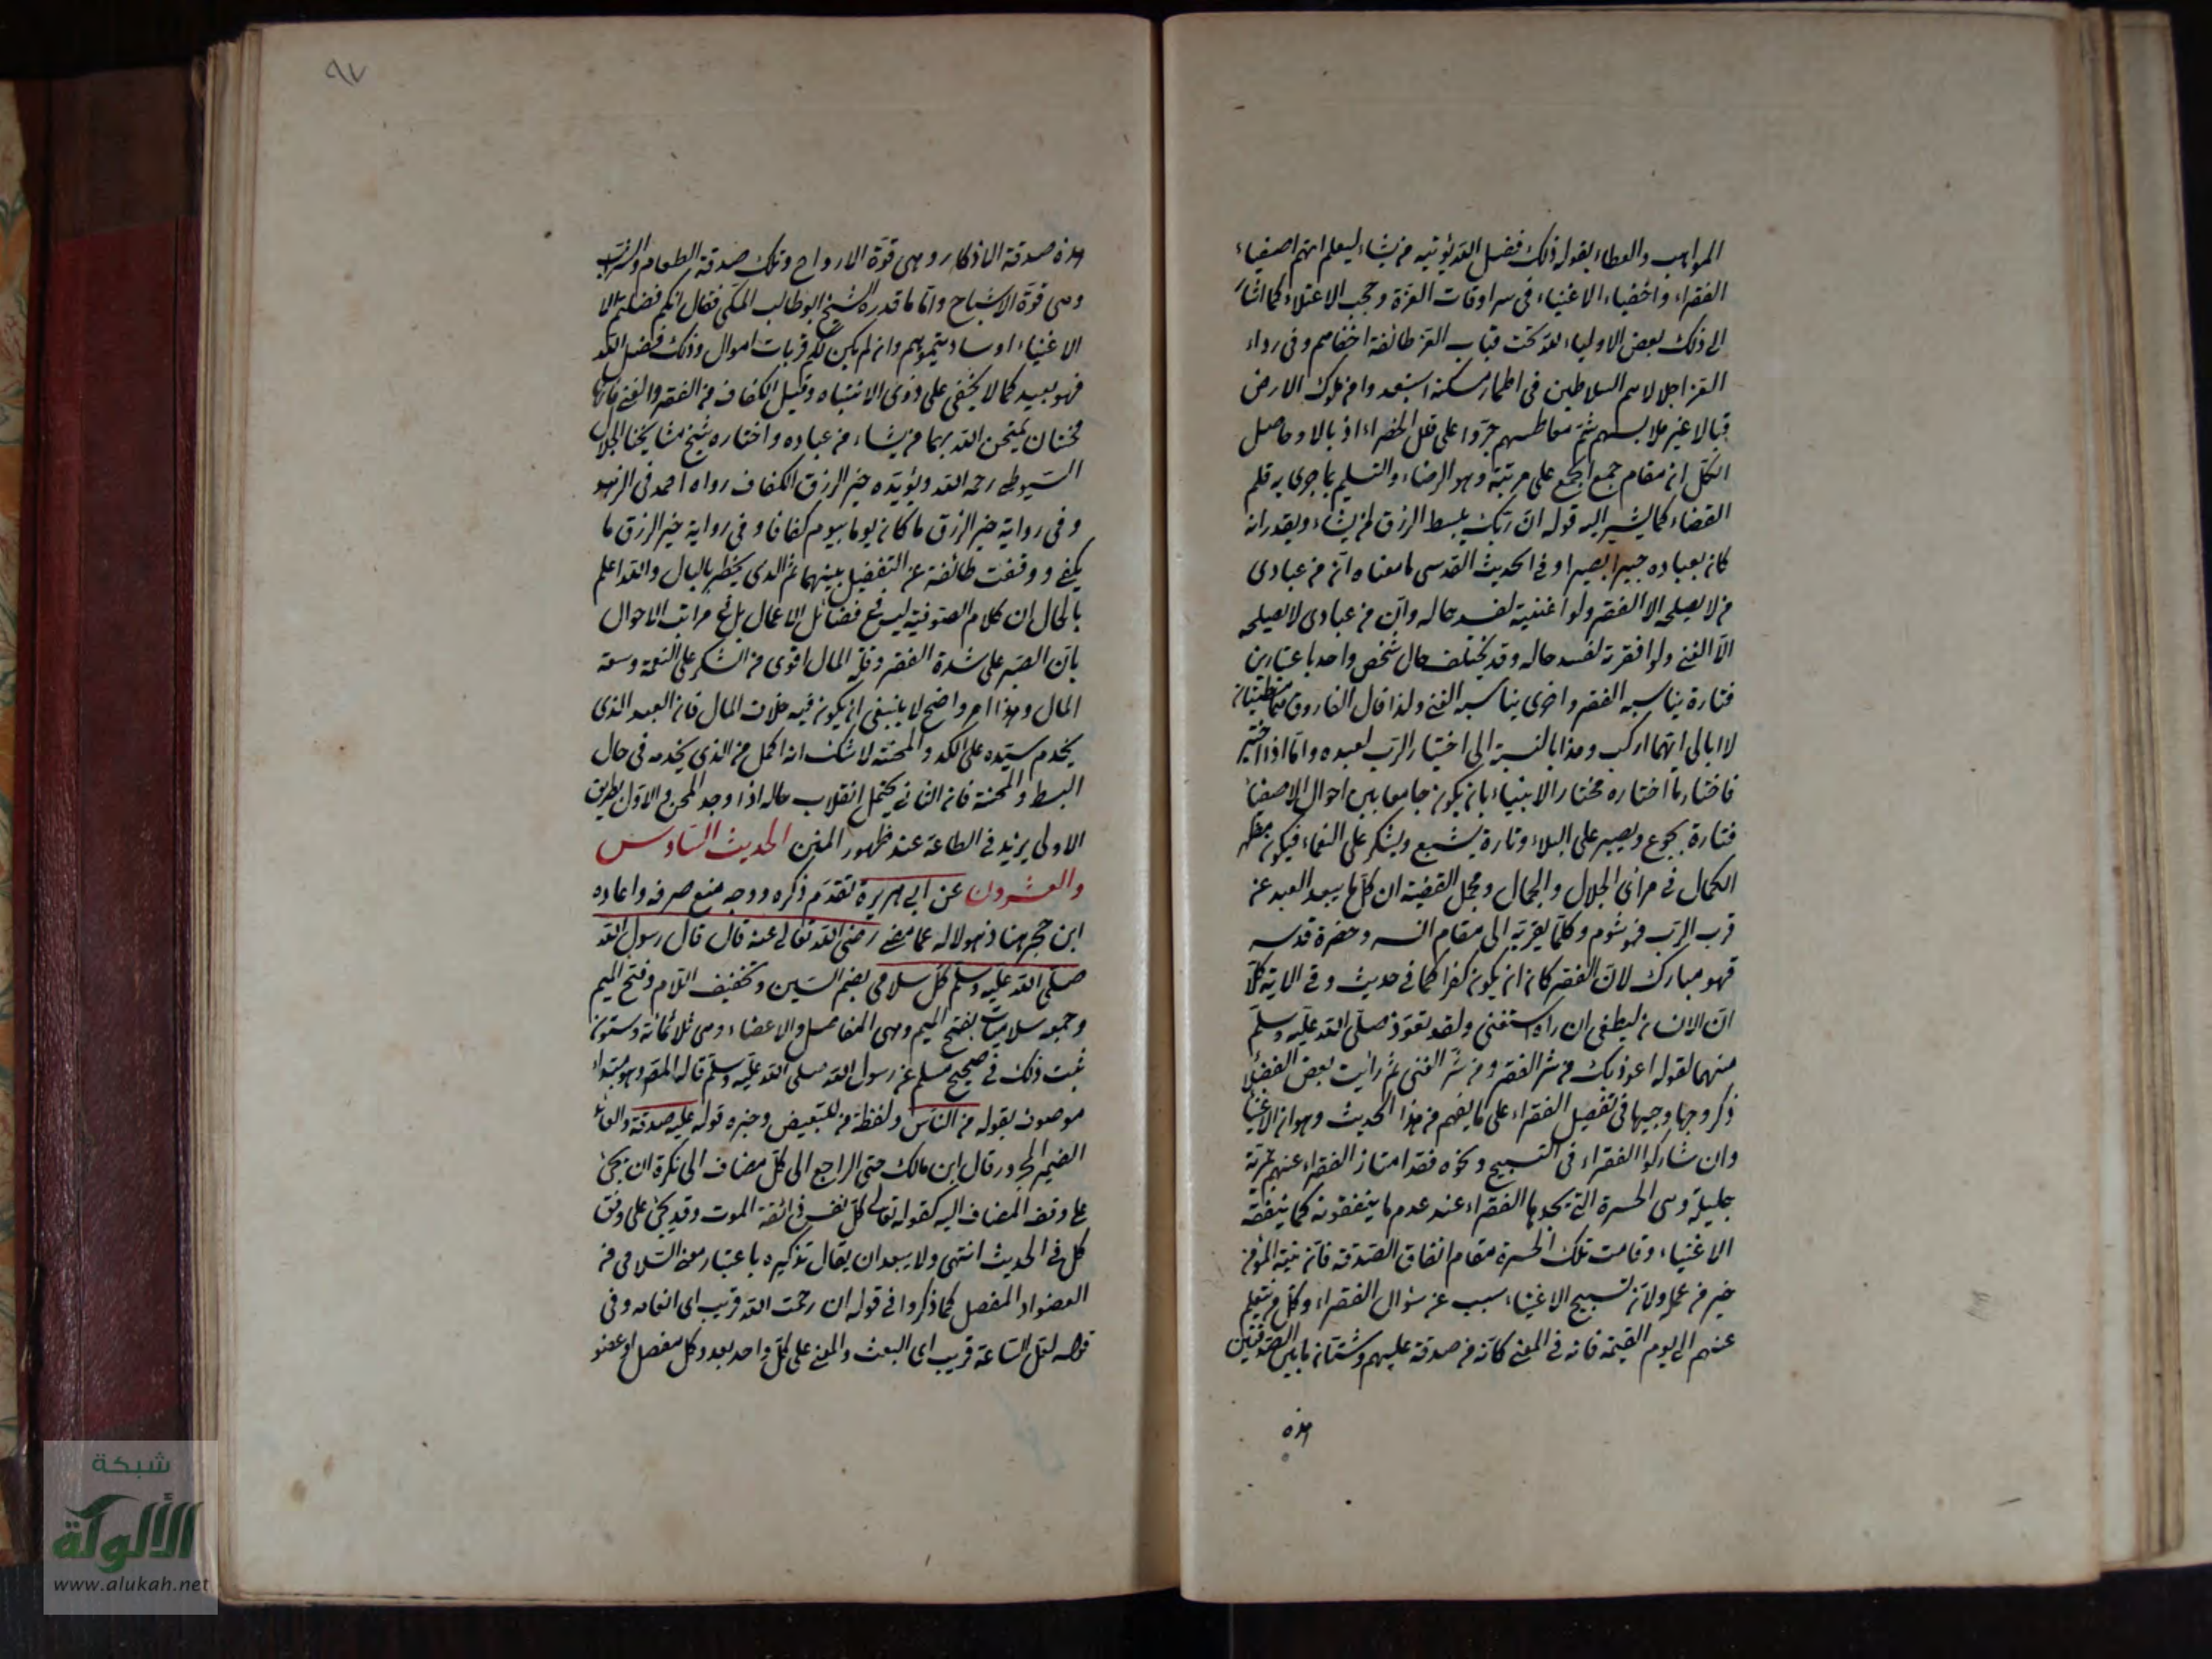 المواهب والعطاء بقوله ذلك فضل الله يؤتيه من يشاء ليعلم انهم اصفياء
الفقراء واخفياء الاغنياء في سرادقات العزة وحجب الاعتلاء كما اشار
الى ذلك بعض الاولياء لله تحت قباب العز طائفة اخفاهم وفى رداء
العز اجلالا هم السلاطين في اطمار مسكنة استعبدوا من ملوك الارض
قبالا غبر ملابسهم شم معاطسهم جروا على فلك الخضراء اذيالا وحاصل
الكل ان مقام جمع الجمع على مرتبة وهو الرضاء والتسليم بما جرى به قلم
القضاء كما يشير اليه قوله ان ربك يبسط الرزق لمن يشاء ويقدر انه
كان بعباده خبيرا بصيرا وفي الحديث القدسي ما معناه ان من عبادى
من لا يصلحه الا الفقر ولو اغنيته لفسد حاله وان من عبادى لا يصلحه
الا الغنى ولو افقرته لفسد حاله وقد يختلف حال شخص واحد باعتبارين
فتارة يناسبه الفقر واخرى يناسبه الغنى ولذا قال الفاروق مطيتان
لا ابالى ايتهما اركب وهذا بالنسبة الى اختيار الرب لعبده واما اذا اختير
فاختار ما اختاره مختار الانبياء بان يكون جامعا بين احوال الاصفياء
فتارة يجوع ويصبر على البلاء وتارة يشبع ويشكر على النعماء فيكون مظهر
الكمال في مرائى الجلال والجمال ومجمل القضية ان كل ما يبعد العبد عن
قرب الرب فهو شوم وكلما يقربه الى مقام انسه وحضرة قدسه
فهو مبارك لان الفقر كاد ان يكون كفرا كما في حديث وفي الاية كلا
ان الانسان ليطغى ان راه استغنى ولقد تعوذ صلى الله عليه وسلم
منهما لقوله اعوذ بك من شر الفقر ومن شر الغنى ثم رايت بعض الفضلا
ذكر وجها وجيها في تفضيل الفقراء على ما يفهم من هذا الحديث وهو ان الاغنيا
وان شاركوا الفقراء في التسبيح ونحوه فقد امتاز الفقراء عنهم بمزية
جليلة وهى الحسرة التى يجدها الفقراء عند عدم ما ينفقونه كما ينفقه
الاغنياء وقامت تلك الحسرة مقام انفاق الصدقة فان نية المؤمن
خير من عمله ولان تسبيح الاغنياء سبب عن سؤال الفقراء وكل من يتعلم
عنهم الى يوم القيمة فانه في المعنى كانه من صدقة عليهم وشتان ما بين الصدقتين
هذه
٩٧
هذه صدقة الاذكار وهى قوة الارواح وتلك صدقة الطعام والشراب
وهى قوة الاشباح واما ما قدره الشيخ ابو طالب المكى فقال انكم فضلتم الا
الاغنياء او ساويتموهم وان لم يكن لكم قربات اموال وذلك فضل الله
فهو بعيد كما لا يخفى على ذوى الانتباه وقيل الكفاف من الفقر والغنى فانها
محنتان يمتحن الله بهما من يشاء من عباده واختاره شيخ مشايخنا الجلال
السيوطى رحمه الله ويؤيده خير الرزق الكفاف رواه احمد في الزهد
وفى رواية خير الرزق ما كان يوما بيوم كفافا وفى رواية خير الرزق ما
يكفى ووقفت طائفة عن التفضيل بينهما ثم الذى يخطر بالبال والله اعلم
بالحال ان كلام الصوفية ليس في فضائل الاعمال بل في مراتب الاحوال
بان الصبر على شدة الفقر وقلة المال اقوى من الشكر على النعمة وسعة
المال وهذا امر واضح لا ينبغى ان يكون فيه خلاف المال فان العبد الذى
يخدم سيده على الكد والمحنة لا شك انه اكمل من الذى يخدمه في حال
البسط والمحنة فان الثانى يحتمل انقلاب حاله اذا وجد المحن والاول بطريق
الاولى يزيد في الطاعة عند ظهور المنن الحديث السادس
والعشرون عن ابى هريرة تقدم ذكره ووجه منع صرفه واعاده
ابن حجر هنا ذهولا له عما مضى رضى الله تعالى عنه قال قال رسول الله
صلى الله عليه وسلم كل سلامى بضم السين وتخفيف اللام وفتح الميم
وجمعه سلاميات بفتح الميم وهى المفاصل والاعضاء وهى ثلاثمائة وستون
ثبت ذلك في صحيح مسلم عن رسول الله صلى الله عليه وسلم قاله المصـ وهو مبتداء
موصوف بقوله من الناس ولفظة من للتبعيض وخبره قوله عليه صدقة والعائد
الضمير المجرور قال ابن مالك حق الراجع الى كل مضاف الى نكرة ان يجئ
على وفق المضاف اليه كقوله تعالى كل نفس ذائقة الموت وقد يجئ على وفق
كل في الحديث انتهى ولا يبعد ان يقال تذكيره باعتبار معنى السلامى من
العضو او المفصل كما ذكروا في قوله ان رحمت الله قريب اى انعامه وفى
قوله لعل الساعة قريب اى البعث والمعنى على كل واحد بعدد كل مفصل او عضو
شبكة
الألوكة
www.alukah.net